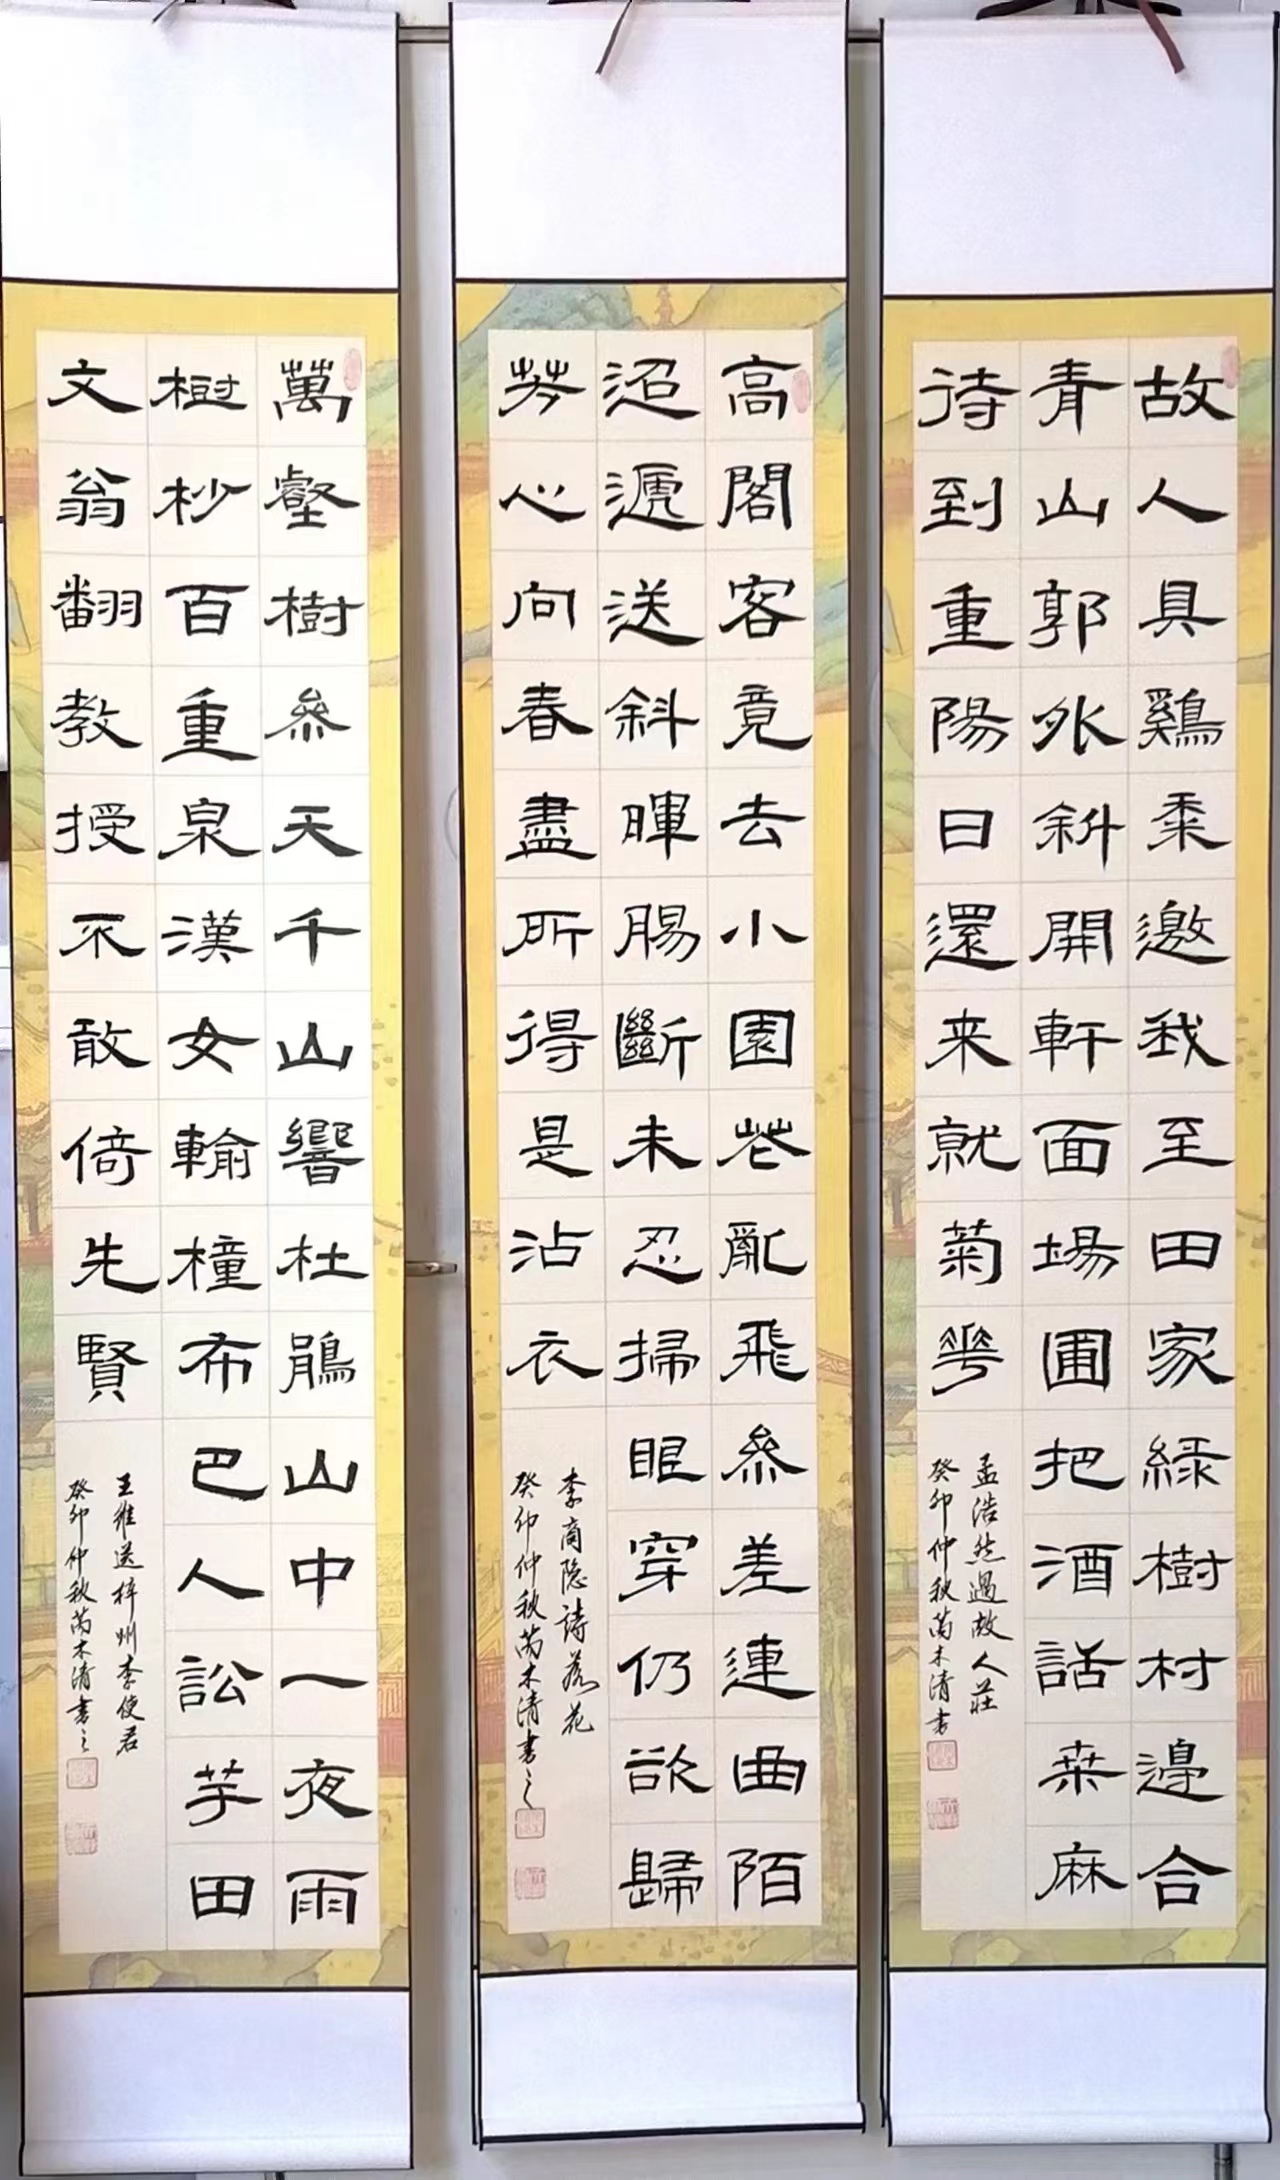 故人具鷄黍邀我至田家綠樹村邊合
青山郭外斜開軒面場圃把酒話桒麻
待到重陽日還来就菊花
孟浩然過故人莊
癸卯仲秋芮木清書
高閣客竟去小園花亂飛參差連曲陌
迢遞送斜暉腸斷未忍掃眼穿仍欲歸
芳心向春盡所得是沾衣
李商隐詩落花
癸卯仲秋芮木清書之
萬壑樹參天千山響杜鵑山中一夜雨
樹杪百重泉漢女輸橦布巴人訟芋田
文翁翻教授不敢倚先賢
王維送梓州李使君
癸卯仲秋芮木清書之